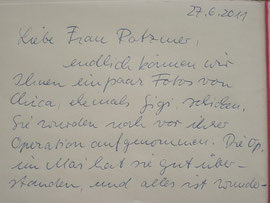 27.6.2011
Liebe Frau Patzner,
endlich können wir
Ihnen ein paar Fotos von
Chica, demals Gigi, schicken.
Sie wurden noch vor ihrer
Operation aufgenommen. Die Op.
im Mai hat sie gut über-
standen, und alles ist wunde-